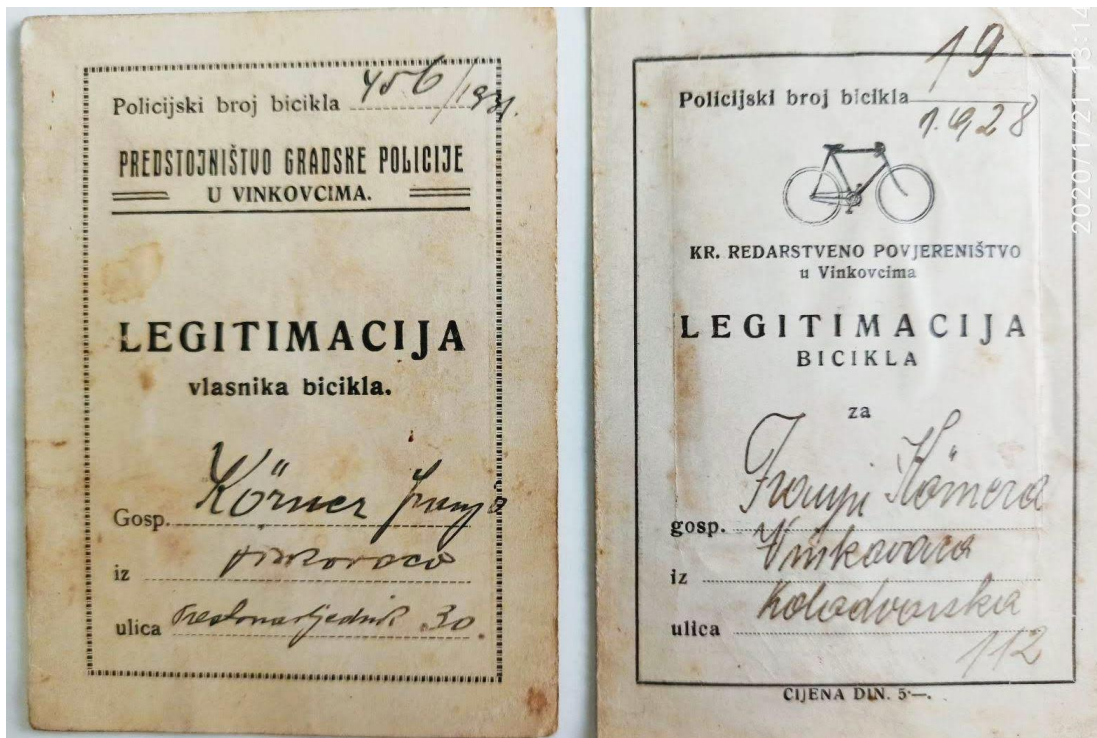 Policijski broj bicikla 456/1931.
PREDSTOJNIŠTVO GRADSKE POLICIJE
U VINKOVCIMA.
LEGITIMACIJA
vlasnika bicikla.
Gosp. Körner Franjo
iz Vinkovaca
ulica Prestolonasljednik 30.
19
Policijski broj bicikla
1928
KR. REDARSTVENO POVJERENIŠTVO
u Vinkovcima
LEGITIMACIJA
BICIKLA
za
gosp. Franju Körnera
iz Vinkovaca
ulica Kolodvorska
112
CIJENA DIN. 5·—.
2020/1/21 13:14